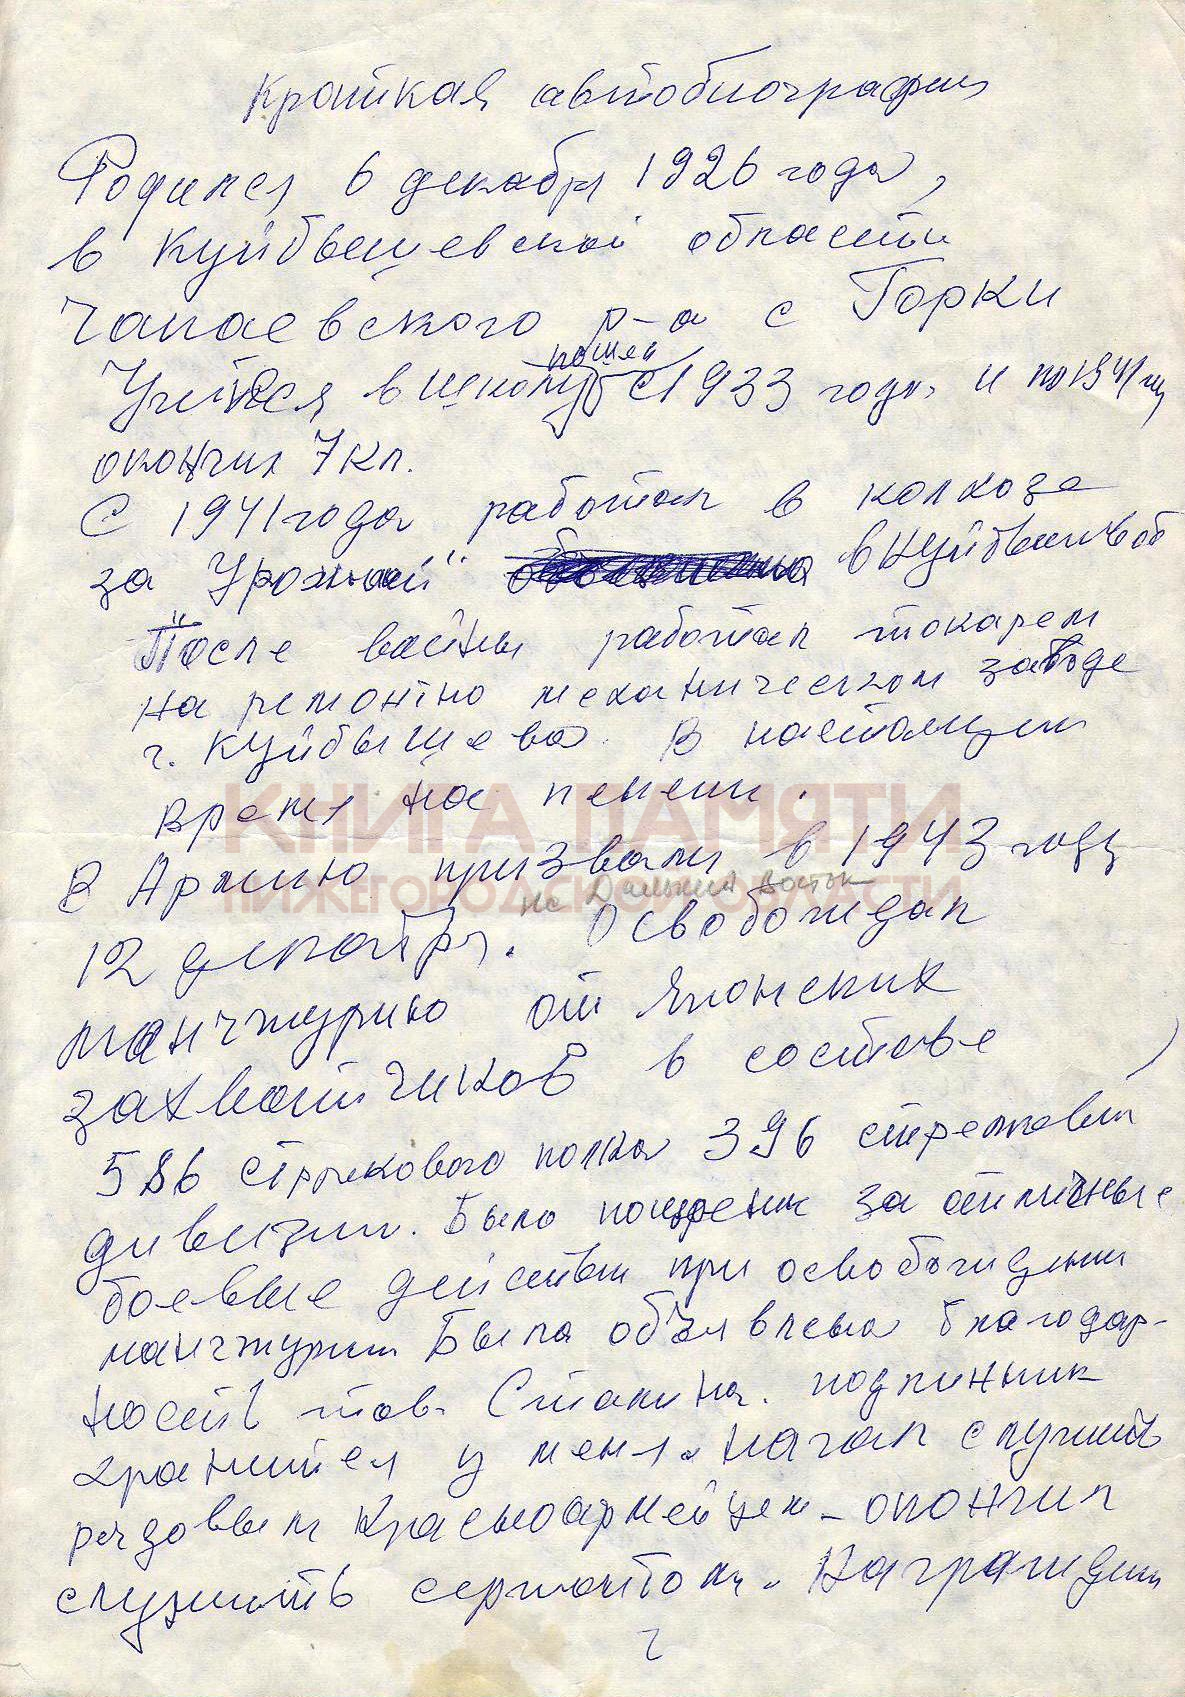 Краткая автобиография
Родился 6 декабря 1926 года,
в Куйбышевской области
Чапаевского р-а с Горки
пошел
Учится в школу с 1933 года и по 1941 г
окончил 7 кл.
С 1941 года работал в колхозе
за Урожай" в Куйбышевской об
После войны работал токарем
на ремонтно механическом заводе
г. Куйбышева. В настоящем
время на пенсии.
В Армию призвали в 1943 году
на Дальний Восток
12 декабря. Освобождал
манчжурию от Японских
захватчиков в составе
586 стрелкового полка 396 стрелковой
дивизии. Было поощрение за отличные
боевые действия при освобождении
манчжурии Была объявлена благодар-
ность тов. Сталина. подлинник
хранится у меня. Начал служить
рядовым Красноармейцем - окончил
служить сержантом. Награжден
КНИГА ПАМЯТИ
НИЖЕГОРОДСКОЙ ОБЛАСТИ